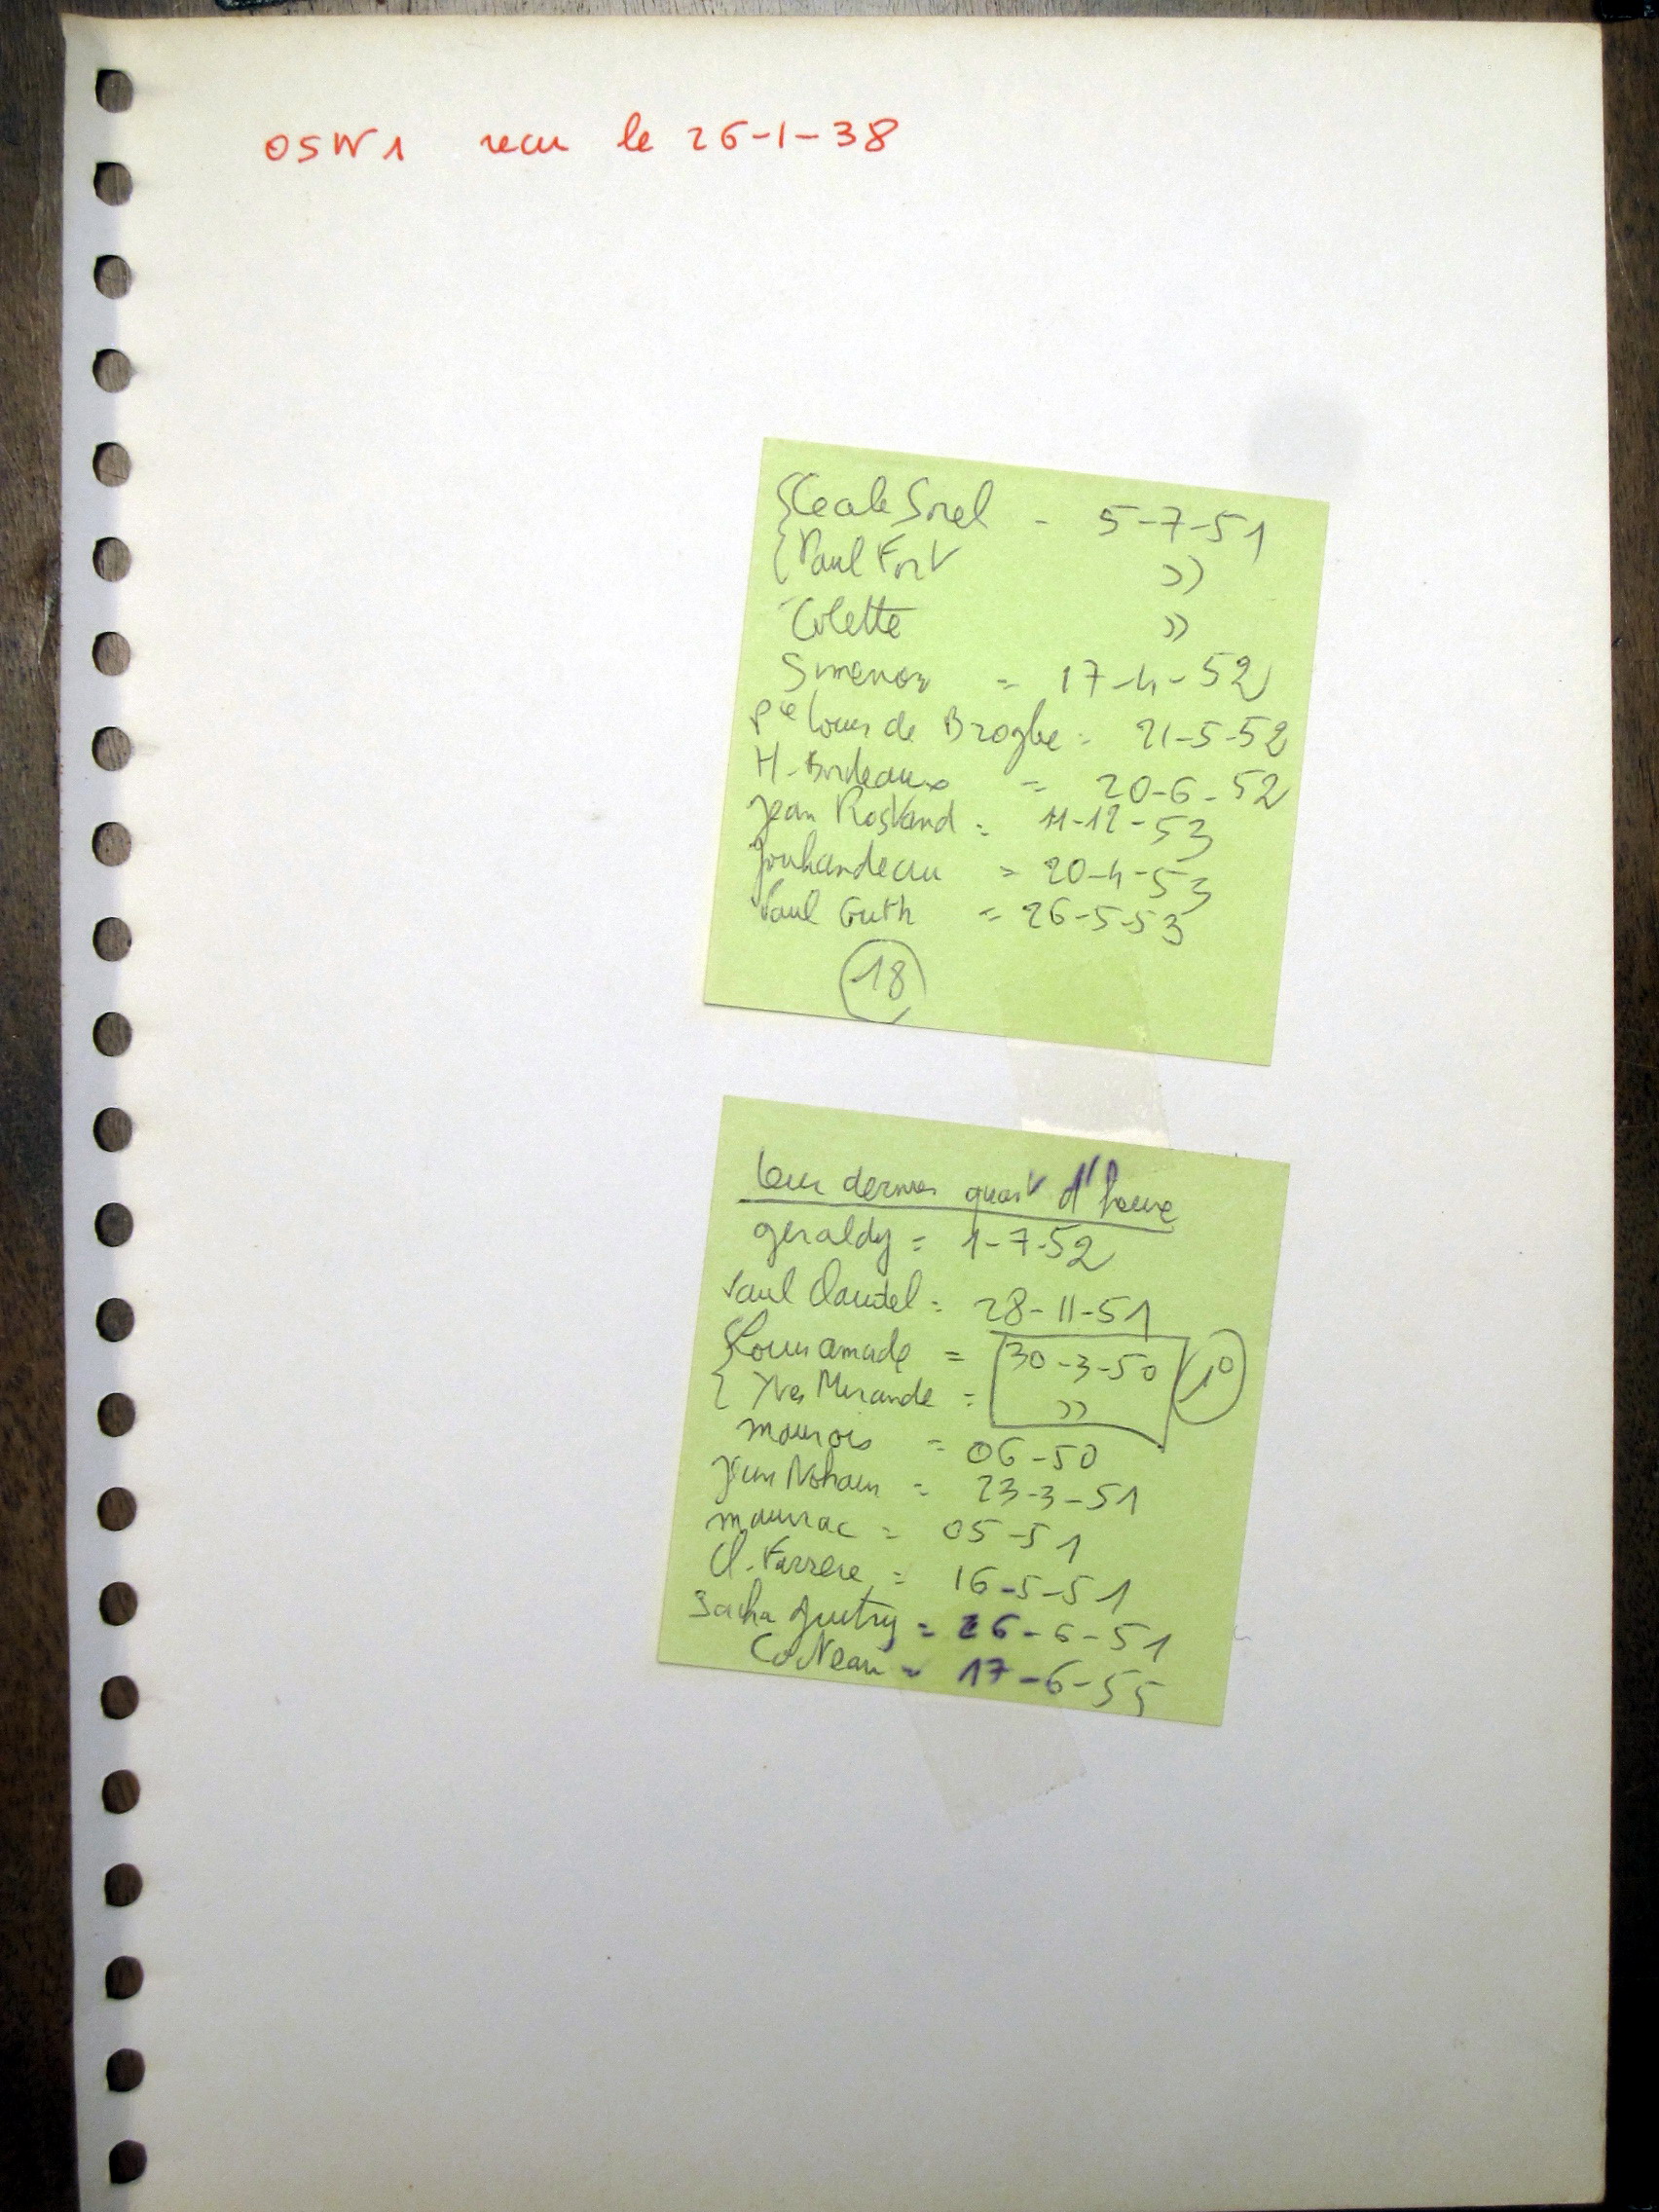 OSW1 recu le 26-1-38
Cecile Sorel - 5-7-51
Paul Fort »
Colette »
Simenon = 17-4-52
Pce Louis de Broglie = 21-5-52
H. Bordeaux = 20-6-52
Jean Rostand = 11-12-53
Jouhandeau = 20-4-53
Paul Guth = 26-5-53
18
leur dernier quart d'heure
geraldy = 1-7-52
Paul Claudel = 28-11-51
Louis amade = 30-3-50 10
Yves Mirande = »
maurois = 06-50
Jean Nohain = 23-3-51
mauriac = 05-51
Cl. Farrere = 16-5-51
Sacha guitry = 26-6-51
Cocteau = 17-6-55